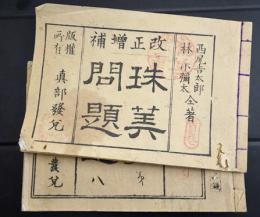 西尾吉太郎
林 小彌太 仝著
改正增補
珠美
問題
版權
所有
真部發兌
發兌
八